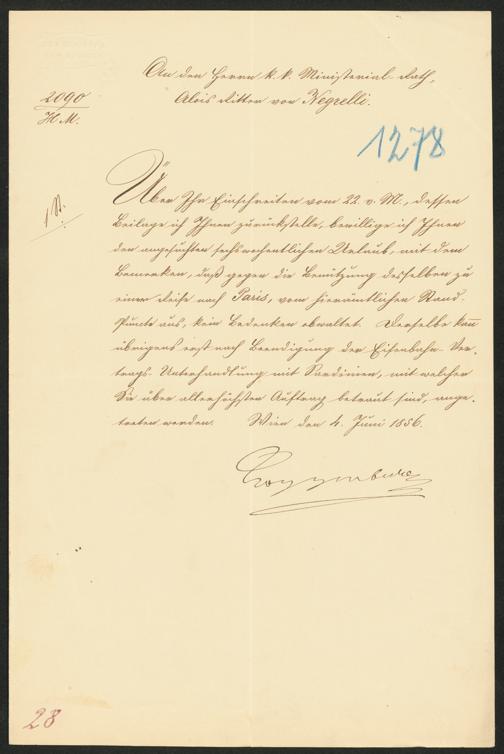 An den Herrn k. k. Ministerial-Rath,
Alois Ritter von Negrelli.
2090
H. M.
1278
1 St.
Über Ihr Einschreiten vom 22. v. M., dessen
Beilage ich Ihnen zurückstelle, bewillige ich Ihnen
den angesuchten sechswochentlichen Urlaub, mit dem
Bemerken, daß gegen die Benützung desselben zu
einer Reise nach Paris, vom hierämtlichen Stand-
punkte aus, kein Bedenken obwaltet. Derselbe kan̄
übrigens erst nach Beendigung der Eisenbahn-Ver-
trags-Unterhandlung mit Sardinien, mit welcher
Sie über allerhöchsten Auftrag betraut sind, ange-
treten werden. Wien den 4. Juni 1856.
Toggenburg
28